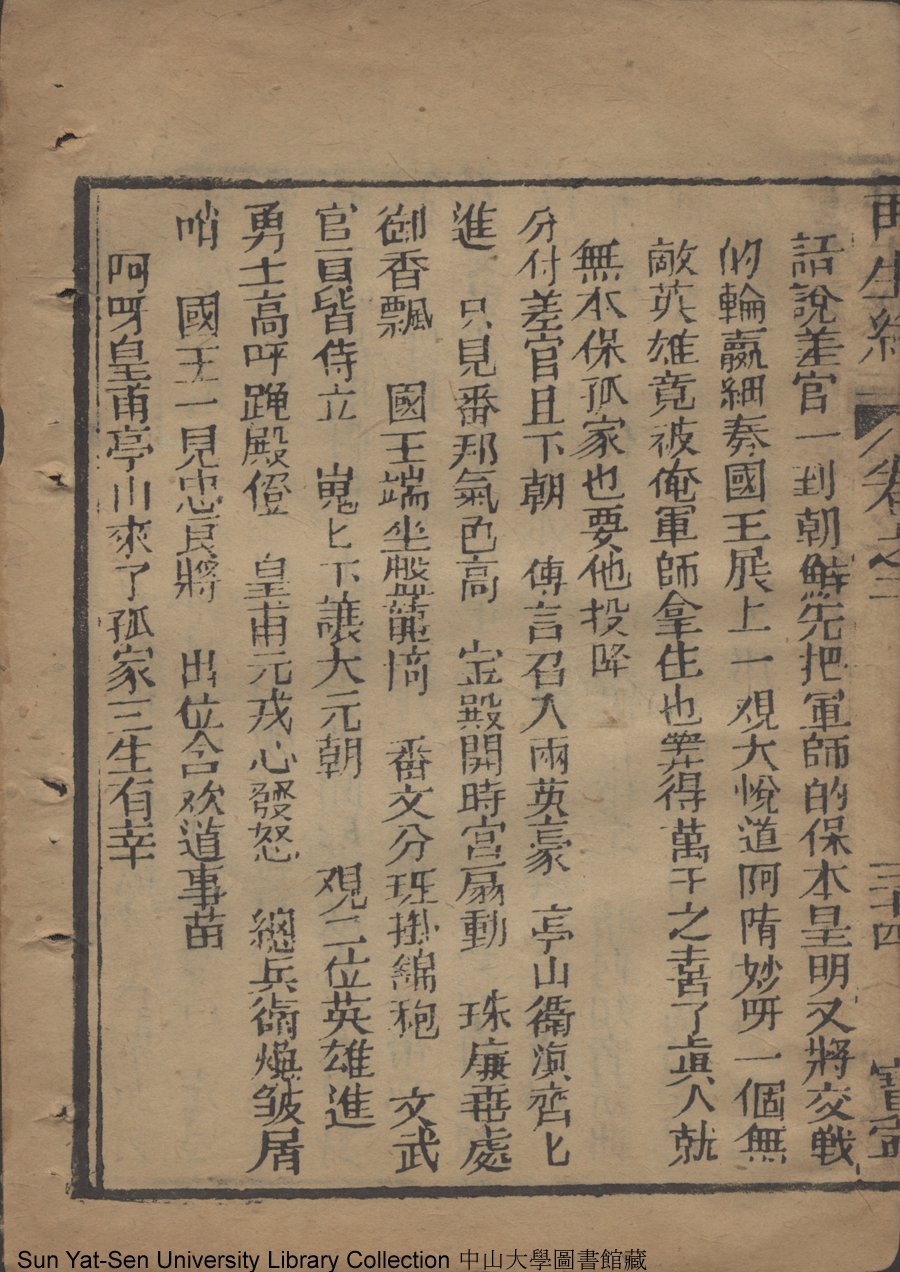 再生緣 卷之二 三十四 寶寧
話說差官一到朝鮮先把軍師的保本呈明又將交戰
的輪贏細奏國王展上一覌大悅道阿隋妙呀一個無
敵英雄竟被俺軍師拿住也筭得萬千之喜了眞人就
無本保孤家也要他投降
分付差官且下朝 傳言召入兩英豪 亭山衛滇齊匕
進 只見番邦氣色高 宝殿開時宮扇動 珠廉垂處
御香飄 國王端坐盤龍 番文分班掛錦袍 文武
官員皆侍立 嵬匕下讓大元朝 覌二位英雄進
勇士高呼跪殿𡎖 皇甫元戎心發怒 總兵衛煥皺眉
哨 國王一見忠良將 出位含欢道事苗
阿呀皇甫亭山來了孤家三生有幸
Sun Yat-Sen University Library Collection 中山大學圖書館藏